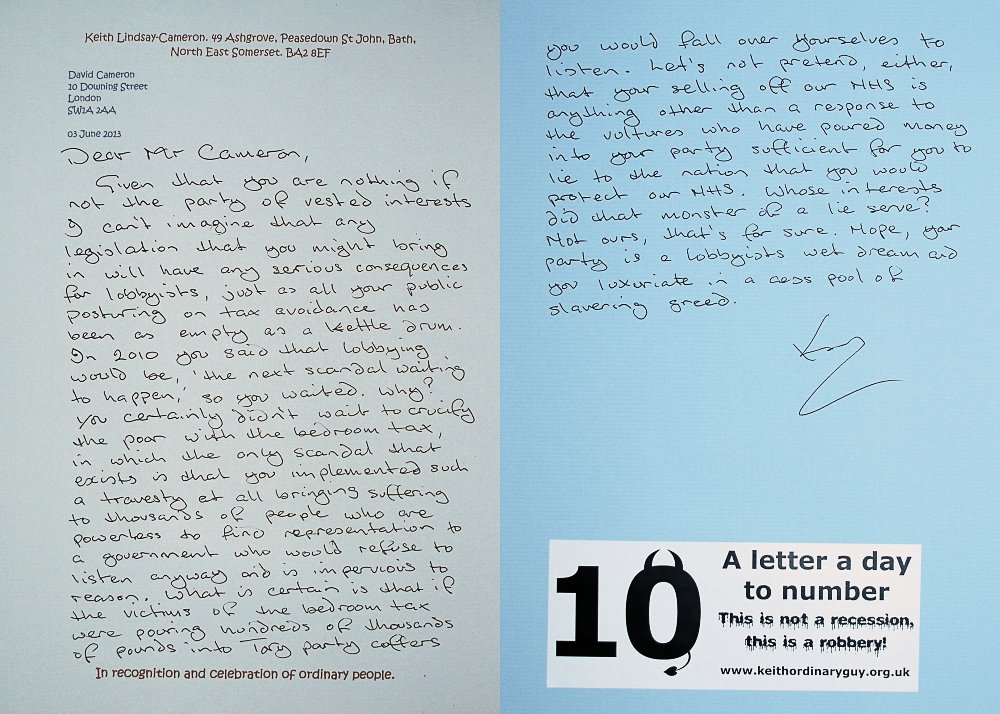 Keith Lindsay-Cameron. 49 Ashgrove, Peasedown St John, Bath,
North East Somerset. BA2 8EF
David Cameron
10 Downing Street
London
SW1A 2AA
03 June 2013
Dear Mr Cameron,
Given that you are nothing if
not the party of vested interests
I can't imagine that any
legislation that you might bring
in will have any serious consequences
for lobbyists, just as all your public
posturing on tax avoidance has
been as empty as a kettle drum.
In 2010 you said that lobbying
would be, 'the next scandal waiting
to happen,' so you waited. Why?
You certainly didn't wait to crucify
the poor with the bedroom tax,
in which the only scandal that
exists is that you implemented such
a travesty at all bringing suffering
to thousands of people who are
powerless to find representation to
a government who would refuse to
listen anyway and is impervious to
reason. What is certain is that if
the victims of the bedroom tax
were pouring hundreds of thousands
of pounds into Tory party coffers
In recognition and celebration of ordinary people.
you would fall over yourselves to
listen. Let's not pretend, either,
that your selling off our NHS is
anything other than a response to
the vultures who have poured money
into your party sufficient for you to
lie to the nation that you would
protect our NHS. Whose interests
did that monster of a lie serve?
Not ours, that's for sure. Nope, your
party is a lobbyists wet dream and
you luxuriate in a cess pool of
slavering greed.
10
A letter a day
to number
This is not a recession,
this is a robbery!
www.keithordinaryguy.org.uk